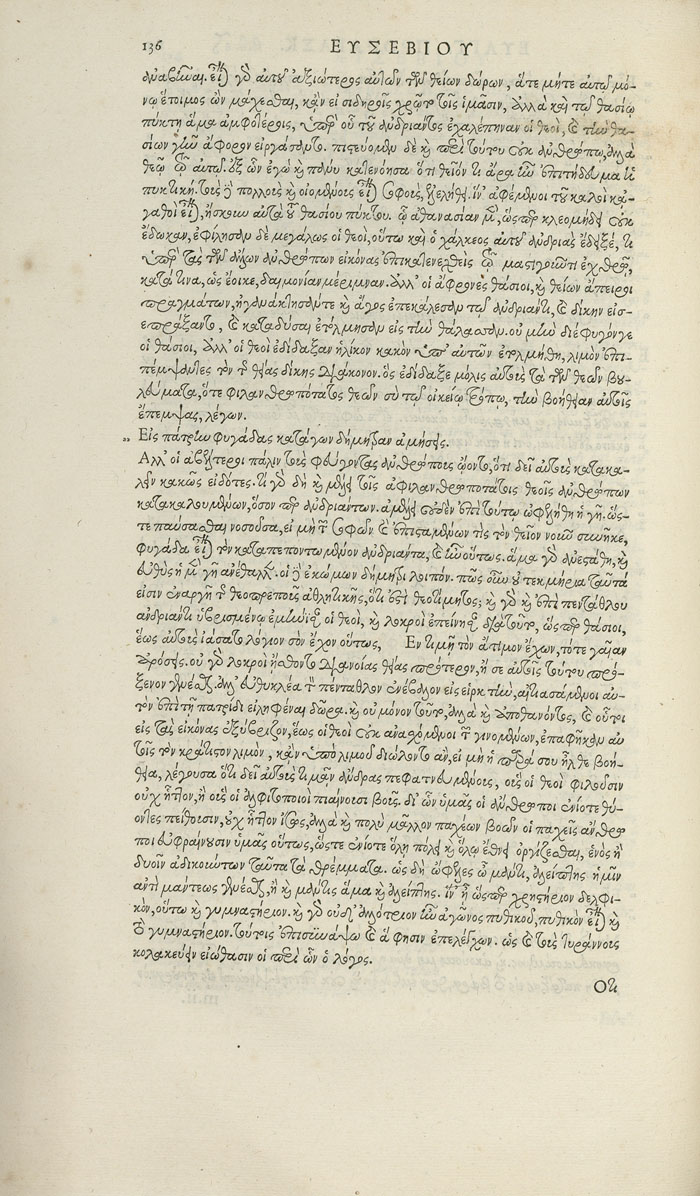 136 ΕΥΣΕΒΙΟΥ
ἀναβιῶναι. εἶναι γὰρ αὐτοῦ ἀξιώτερος αὐτῶν τῶν θείων δώρων, ἅτε μήτε αὐτῷ μό-
νῳ ἕτοιμος ὢν μάχεσθαι, κἂν εἰ σιδηροῖς χρῷτο τοῖς ἱμᾶσιν, ἀλλὰ καὶ τῷ θασίῳ
πύκτῃ ἅμα ἀμφοτέροις, ὑπὲρ οὗ τοῦ ἀνδριάντος ἐχαλέπηναν οἱ θεοὶ, καὶ τὴν θα-
σίων γῆν ἄφορον εἰργάσαντο. πιστεύομεν δὲ καὶ περὶ τούτου οὐκ ἀνθρώπῳ, ἀλλὰ
θεῷ αὐτῷ. ἐξ ὧν ἐγὼ καὶ πολὺ κατενόησα ὅτι θεῖόν τι ἄρα ἦν ἐπιτήδευμα ἡ
πυκτική. τοῖς δὲ πολλοῖς καὶ οἰομένοις εἶναι σοφοῖς, ἐξελήθη. ἵν' ἀφέμενοι τοῦ καλοὶ κἀ-
γαθοὶ εἶναι, ἤσκουν αὐτὰ τοῦ θασίου πύκτου. ᾧ ἀθανασίαν μὲν, ὥσπερ κλεομήδει οὐκ
ἔδωκαν, ἐφίλησαν δὲ μεγάλως οἱ θεοί, οὕτω καὶ ὁ χάλκεος αὐτοῦ ἀνδριὰς ἔδειξέ, τι
ὑπὲρ τὰς τῶν ἄλλων ἀνθρώπων εἰκόνας ἐπικατενεχθεὶς τῷ μαστιγοῦντι ἐχθρῷ,
κατά τινα, ὡς ἔοικε, δαιμονίαν μέριμναν. ἀλλ' οἱ ἄφρονες θάσιοι, καὶ θείων ἄπειροι
πραγμάτων, ἠγανάκτησάν τε καὶ ἄγος ἐπεκάλεσαν τῷ ἀνδριάντι, καὶ δίκην εἰσ-
επράξαντο, καὶ καταδύσαι ἐτόλμησαν εἰς τὴν θάλασσαν. οὐ μὴν διέφυγόν γε
οἱ θάσιοι, ἀλλ' οἱ θεοὶ ἐδίδαξαν ἡλίκον κακὸν ὑπ' αὐτῶν ἐτολμήθη, λιμὸν ἐπι-
πέμψαντες τὸν τῆς θείας δίκης διάκονον. ὃς ἐδίδαξε μόλις αὐτοῖς τὰ τῶν θεῶν βου-
λεύματα, ὅτε φιλανθρωπότατος θεῶν σὺ τῷ οἰκείῳ τρόπῳ, τὴν βοήθειαν αὐτοῖς
ἔπεμψας, λέγων.
„ Εἰς πάτρην φυγάδας κατάγων δήμητραν ἀμήσεις.
Ἀλλ' οἱ ἀβέλτεροι πάλιν τοὺς φεύγοντας ἀνθρώπους ᾤοντο, ὅτι δεῖ αὐτοὺς κατακα-
λεῖν κακῶς εἰδότες. τί γὰρ δὴ καὶ μέλει τοῖς ἀφιλανθρωποτάτοις θεοῖς ἀνθρώπων
κατακαλουμένων, ὅσον περ ἀνδριάντων. ἀμέλει οὐδὲν ἐπὶ τούτῳ ὠφελήθη ἡ γῆ. ὥσ-
τε παύσασθαι νοσοῦσα, εἰ μὴ τῶν σοφῶν καὶ ἐπισταμένων τὶς τὸν θεῖον νοῦν συνῆκε,
φυγάδα εἶναι τὸν καταπεποντωμένον ἀνδριάντα, καὶ ἦν οὕτως. ἅμα γὰρ ἀνεστάθη, καὶ
εὐθὺς ἡ μὲν γῆ ἀνέθαλλε. οἱ δὲ ἐκόμων δήμητρι λοιπόν. πῶς οὖν οὐ τεκμήρια ταῦτά
εἰσιν ἐναργῆ τῆς θεοπρεποῦς ἀθλητικῆς, ὅτι ἐστὶ θεοτίμητος; καὶ γὰρ καὶ ἐπὶ πεντάθλου
ἀνδριάντι ὑβρισμένῳ ἐμήνισαν οἱ θεοὶ, καὶ λοκροὶ ἐπείνησαν διὰ τοῦτο, ὥσπερ θάσιοι,
ἕως αὐτοὺς ἰάσατο λόγιον σὸν ἔχον οὕτως, Ἐν τιμῇ τὸν ἄτιμον ἔχων, τότε γαῖαν
ἀρόσεις. οὐ γὰρ λοκροὶ ᾔσθοντο διανοίας θείας πρότερον, ἢ σε αὐτοῖς τούτου πρό-
ξενον γενέσθαι. ἀλλ' εὐθυκλέα τὸν πένταθλον ἐνέβαλον εἰς εἱρκτὴν, αἰτιασάμενοι αὐ-
τὸν ἐπὶ τῇ πατρίδι εἰληφέναι δῶρα. καὶ οὐ μόνον τοῦτο, ἀλλὰ καὶ ἀποθανόντος, καὶ οὗτοι
εἰς τὰς εἰκόνας ἐξύβριζον, ἕως οἱ θεοὶ οὐκ ἀνασχόμενοι τῶν γινομένων, ἐπαφῆκαν αὐ
τοῖς τὸν κράτιστον λιμόν, κἂν ὑπὸ λιμοῦ διώλοντο ἂν, εἰ μὴ ἡ παρά σου ἦλθε βοή-
θεια, λέγουσα ὅτι δεῖ αὐτοὺς τιμᾶν ἄνδρας πεφατνευμένους, οὓς οἱ θεοὶ φιλοῦσιν
οὐχ ἧττον, ἢ οὓς οἱ ἀλφιτοποιοὶ πιαίνουσι βοῦς. δι' ὧν ὑμᾶς οἱ ἄνθρωποι ἐνίοτε θύ-
οντες πείθουσιν, οὐχ ἧττον ἴσως, ἀλλὰ καὶ πολὺ μᾶλλον παχέων βοῶν οἱ παχεῖς ἄνθρω
ποι εὐφραίνουσιν ὑμᾶς οὕτως, ὥστε ἐνίοτε ὅλῃ πόλει καὶ ὅλῳ ἔθνει ὀργίζεσθαι, ἑνὸς ἢ
δυοῖν ἀδικούντων ταῦτα τὰ θρέμματα. ὡς δὴ ὤφελες ὦ μάντι, ἀλείπτης ἡμῖν
ἀντὶ μάντεως γενέσθαι, ἢ καὶ μάντις ἅμα καὶ ἀλείπτης. ἵν' ᾖ ὥσπερ χρηστήριον δελφι-
κόν, οὕτω καὶ γυμναστήριον. καὶ γὰρ οὐδ' ἀλλότριον ἦν ἀγῶνος πυθικοῦ, πυθικὸν εἶναι καὶ
τὸ γυμναστήριον. τούτοις ἐπισυνάψω καὶ ἄ φησιν ἐπελέγχων. ὡς καὶ τοὺς τυράννους
κολακεύειν εἰώθασιν οἱ περὶ ὧν ὁ λόγος.
Ὅτι